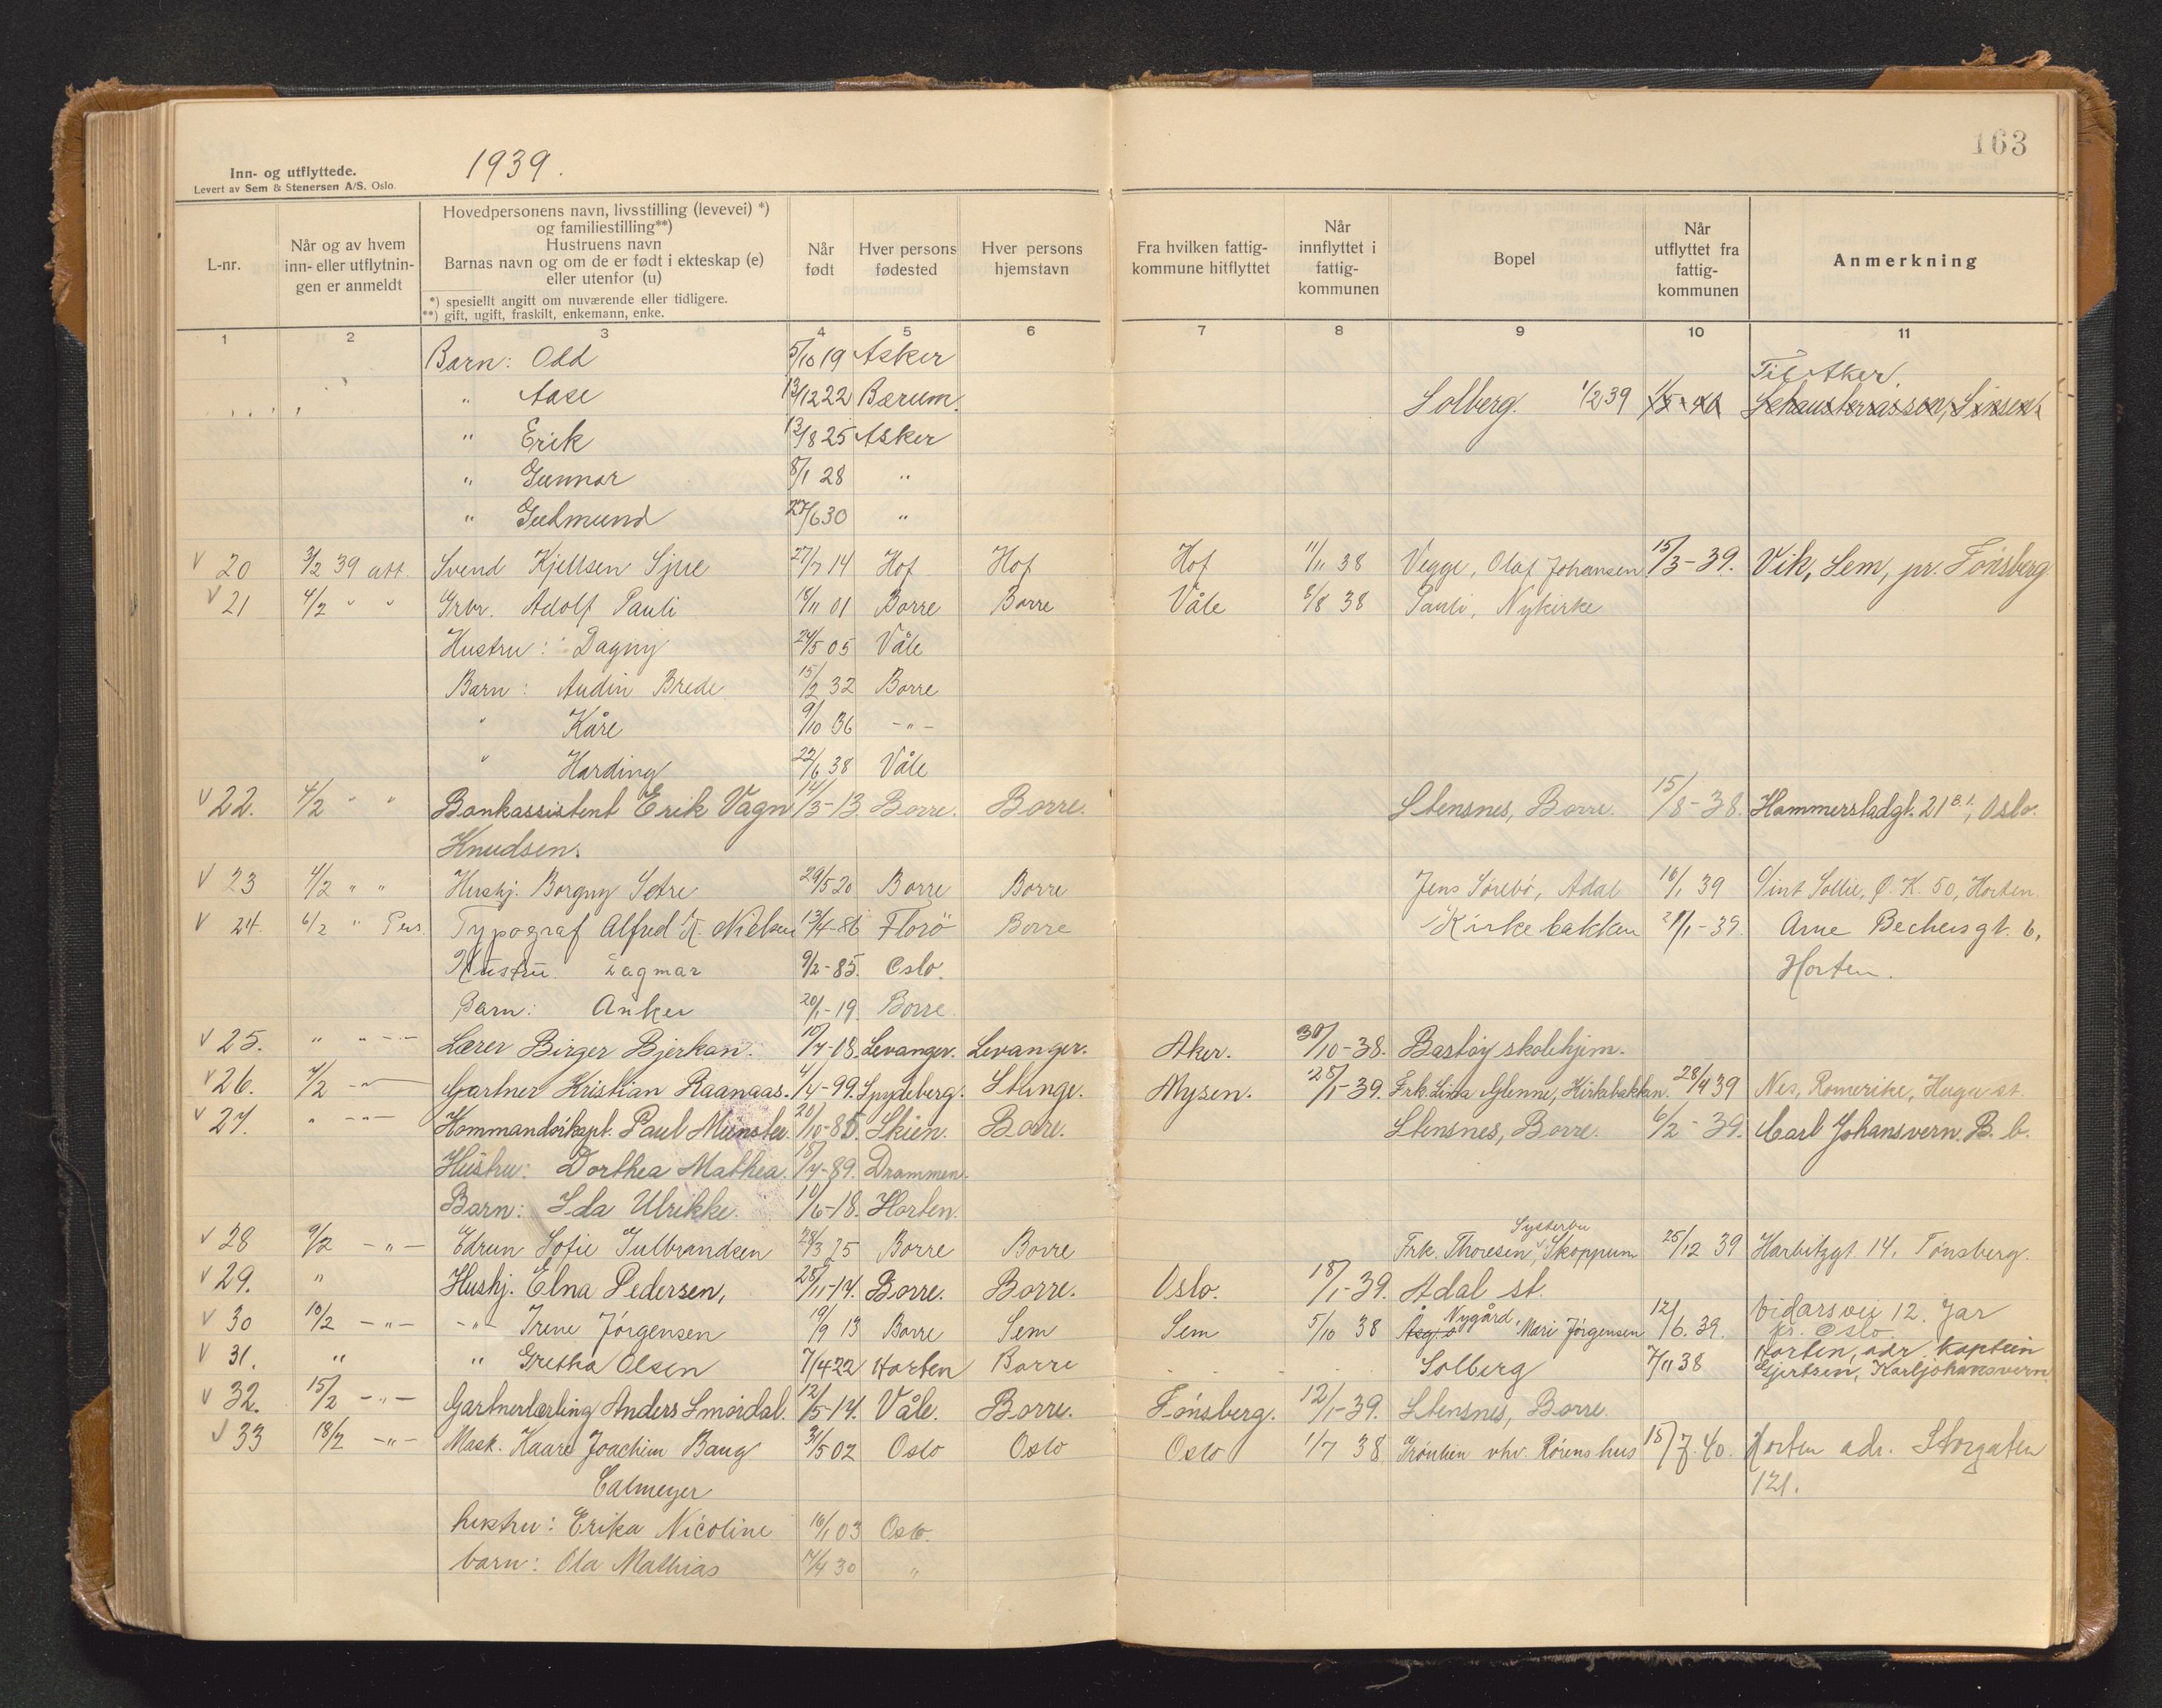 163
Inn- og utflyttede.
Levert av Sem & Stenersen A/S, Oslo.
1939.
L-nr.
Når og av hvem inn- eller utflytnin-gen er anmeldt
Hovedpersonens navn, livsstilling (levevei) *) og familiestilling**)
Hustruens navn
Barnas navn og om de er født i ekteskap (e) eller utenfor (u)
*) spesiellt angitt om nuværende eller tidligere.
**) gift, ugift, fraskilt, enkemann, enke.
Når født
Hver persons fødested
Hver persons hjemstavn
Fra hvilken fattig-kommune hitflyttet
Når innflyttet i fattig-kommunen
Bopel
Når utflyttet fra fattig-kommunen
Anmerkning
1 2 3 4 5 6 7 8 9 10 11
Barn: Odd 5/10 19 Asker Til Aker.
" Aase 13/12 22 Bærum. Solberg. 1/2 39
" Erik 13/8 25 Asker
" Gunnar 8/1 28 "
" Gudmund 27/6 30 "
V 20 3/2 39 att. Svend Kjeldsen Sjue 27/7 14 Hof Hof Hof 11/11 38 Vegge, Olaf Johansen 15/3-39. Vik, Sem, pr. Tönsberg.
V 21 4/2 " " Grbr. Adolf Pauli 18/11 01 Borre Borre Våle 8/8 38 Pauli, Nykirke
Hustru: Dagny 24/5 05 Våle
Barn: Audin Brede 15/2 32 Borre
" Kåre 9/10 36 -"-
" Harding 22/6 38 Våle
V 22. 4/2 " " Bankassistent Erik Vagn 14/3-13. Borre. Borre. Stensnes, Borre. 15/8-38. Hammerstadgt. 21 B.1, Oslo.
Knudsen.
V 23 4/2 " " Hushj. Borgny Setre 29/5 20 Borre Borre Jens Sörebö, Adal 16/1 39 C/int Sollie, Ø. K. 50, Horten.
V 24. 6/2 " Pers. Typograf Alfred K. Nielsen 13/4-86 Florö Borre Kirkebakken 21/1-39. Arne Bechersgt. 6,
Hustru Dagmar 9/2-85. Oslo. Horten.
Barn: Anker 20/1-19. Borre.
V 25. " " -"- Lærer Birger Bjerkan. 10/7-18. Levanger. Levanger. Aker. 30/10-38. Bastöy skolehjem.
V 26. 7/2 -"- Gartner Kristian Raanaas. 4/4-99. Spydeberg. Stange. Mysen. 25/1-39. Frk. Linda Glenne, Kirkebakken. 28/4 39 Nes, Romerike, Haga st.
V 27. " -"- Kommandörkapt. Paul Münster. 20/10-85. Skien. Borre. Stensnes, Borre. 6/2-39. Carl Johansvern. B. b.
Hustru: Dorthea Mathea. 18/7-89. Drammen.
Barn: Ida Ulrikke. 10/6-18. Horten.
V 28 9/2 -"- Edrun Sofie Gulbrandsen 28/3 25 Borre Borre Frk. Thoresen, Systerbu Skoppum 25/12 39 Harbitzgt. 14. Tönsberg.
V 29. " Hushj. Elna Pedersen, 28/11-14. Borre. Borre. Oslo. 18/1-39. Adal st.
V 30 10/2 -"- -"- Irene Jörgensen 19/9 13 Borre Sem Sem 5/10 38 Nygård, Mari Jörgensen 12/6. 39. Vidarsvei 12. Jar
pr. Oslo.
V 31. " " Gretha Olsen 7/4 22 Horten Borre Solberg 7/11 38 Horten, adr. Kaptein
Gjertsen, Karljohansvern.
V 32. 15/2 -"- Gartnerlærling Anders Smördal. 12/5-14. Våle. Borre. Tönsberg. 12/1-39. Stensnes, Borre.
V 33 18/2 -"- Mask. Kaare Joachim Baug 31/5 02 Oslo Oslo Oslo 1/7 38 vhv. Rörens hus 15/7. 40. Horten adr. Storgaten
Calmeyer 121.
hustru: Erika Nicoline 16/1 03 Oslo.
barn: Ola Mathias 17/4 30 "